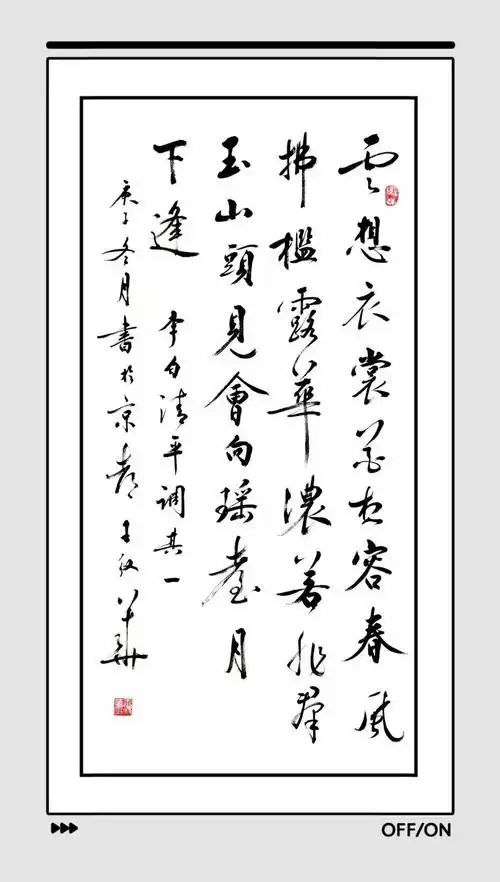 雲想衣裳花想容春風
拂檻露華濃若非羣
玉山頭見會向瑶臺月
下逢 李白清平調其一
庚子冬月書於京都 王文華
OFF/ON